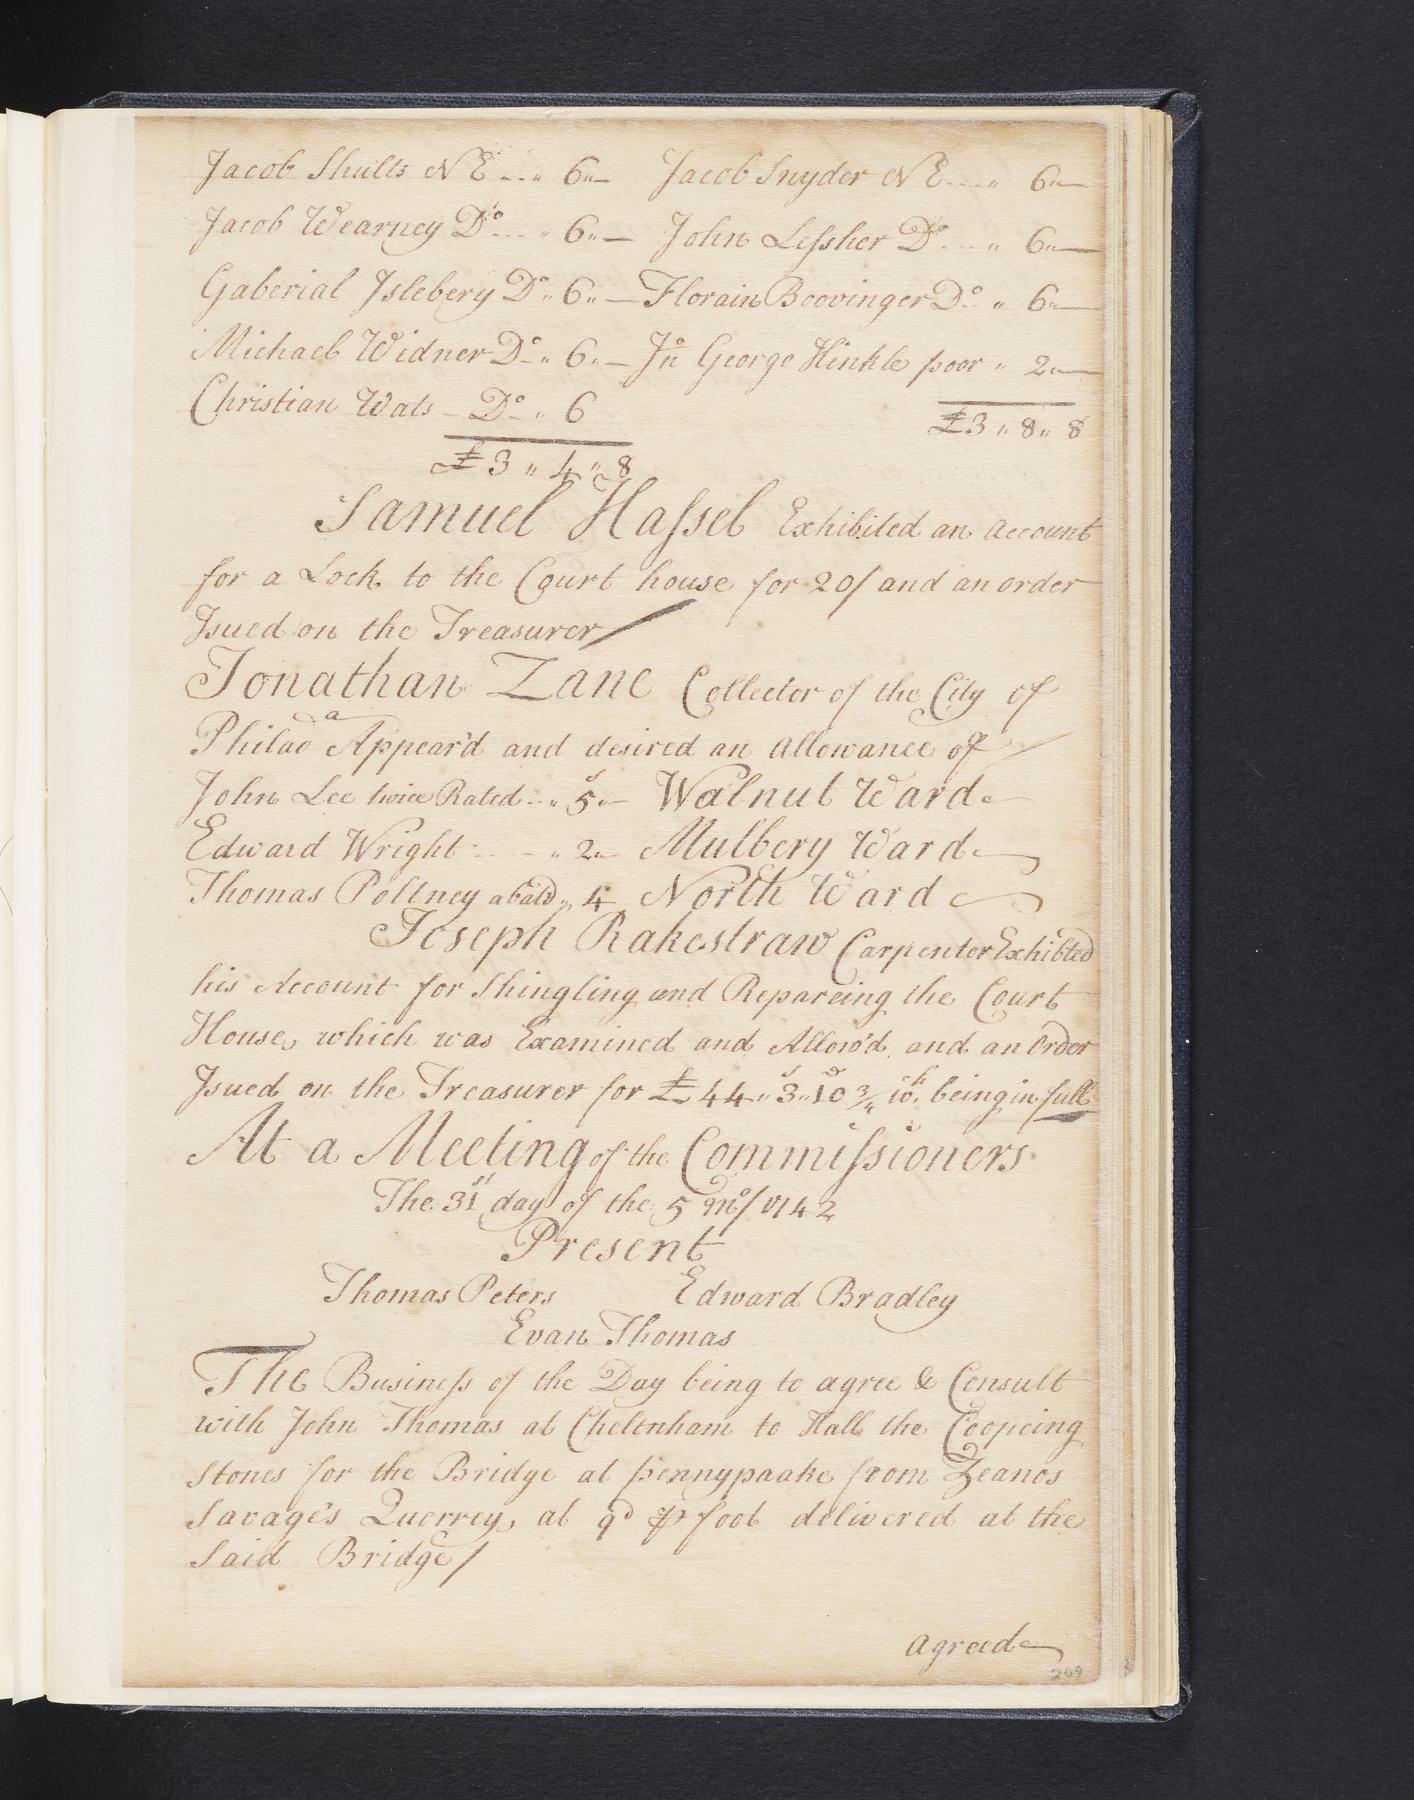 Jacob Shults N E .. „ 6„— Jacob Snyder N E .. „ 6„—
Jacob Wearney Do .. „ 6„— John Leſsher Do .. „ 6„—
Gaberial Islebery Do „ 6„— Florain Boovinger Do „ 6„—
Michael Widner Do „ 6„— Jno George Hinkle poor „ 2„—
Christian Wats Do „ 6
£3 „ 8„ 8
£3 „ 4 „ 8
Samuel Haſsel Exhibited an Account
for a Lock to the Court house for 20/ and an order
Isued on the Treasurer/
Jonathan Zane Collector of the City of
Philada Appear'd and desired an Allowance of
John Lee twice Rated .. „ 5s„— Walnut Ward
Edward Wright .. „ 2„— Mulbery Ward
Thomas Poltney abatd „ 4 North Ward
Joseph Rakestraw Carpenter Exhibted
his Account for Shingling and Repareing the Court
House, which was Examined and Allow'd, and an Order
Isued on the Treasurer for £44„ 3s„ 10d 3/4 being in full
At a Meeting of the Commiſsioners
The 31st day of the 5 mo/ 1742
Present
Thomas Peters Edward Bradley
Evan Thomas
The Busineſs of the Day being to agree & Consult
with John Thomas at Cheltnham to Hall the Coopeing
Stones for the Bridge at pennypaake from Zeanos
Savage's Querrey, at 9d ⅌ foot delivered at the
Said Bridge/
agreed
209